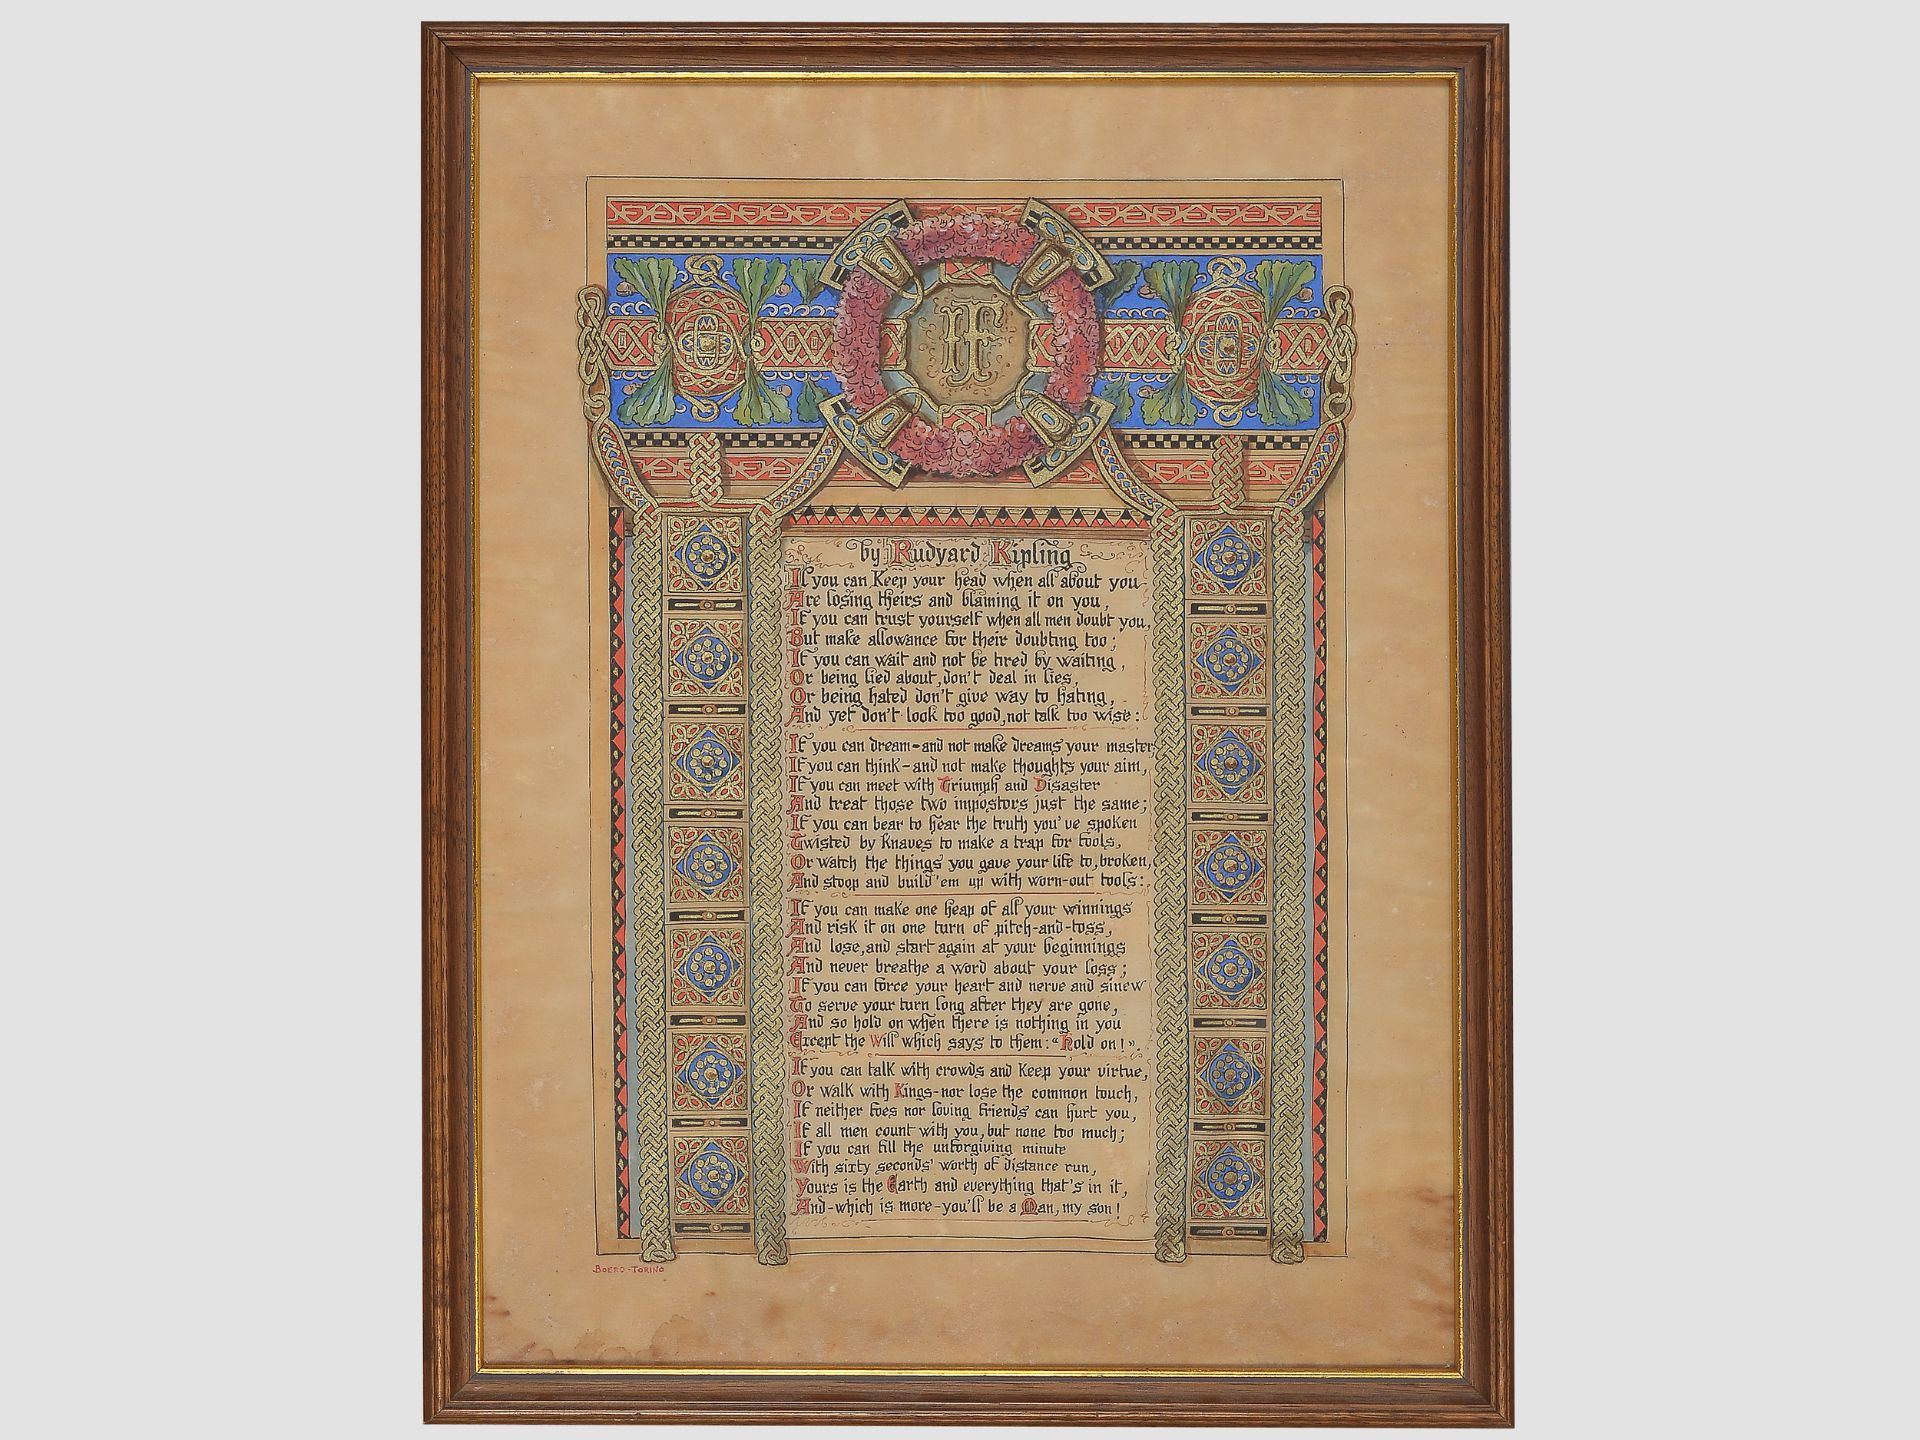 IF
by Rudyard Kipling
If you can Keep your head when all about you
Are losing theirs and blaming it on you,
If you can trust yourself when all men doubt you,
But make allowance for their doubting too;
If you can wait and not be tired by waiting,
Or being lied about, don't deal in lies,
Or being hated don't give way to hating,
And yet don't look too good, not talk too wise:
If you can dream-and not make dreams your master,
If you can think-and not make thoughts your aim,
If you can meet with Triumph and Disaster
And treat those two impostors just the same;
If you can bear to hear the truth you've spoken
Twisted by Knaves to make a trap for fools,
Or watch the things you gave your life to, broken,
And stoop and build 'em up with worn-out tools:
If you can make one heap of all your winnings
And risk it on one turn of pitch-and-toss,
And lose, and start again at your beginnings
And never breathe a word about your loss;
If you can force your heart and nerve and sinew
To serve your turn long after they are gone,
And so hold on when there is nothing in you
Except the Will which says to them: "Hold on!".
If you can talk with crowds and Keep your virtue,
Or walk with Kings-nor lose the common touch,
If neither foes nor loving friends can hurt you,
If all men count with you, but none too much;
If you can fill the unforgiving minute
With sixty seconds' worth of distance run,
Yours is the Earth and everything that's in it,
And-which is more-you'll be a Man, my son!
BOERO-TORINO